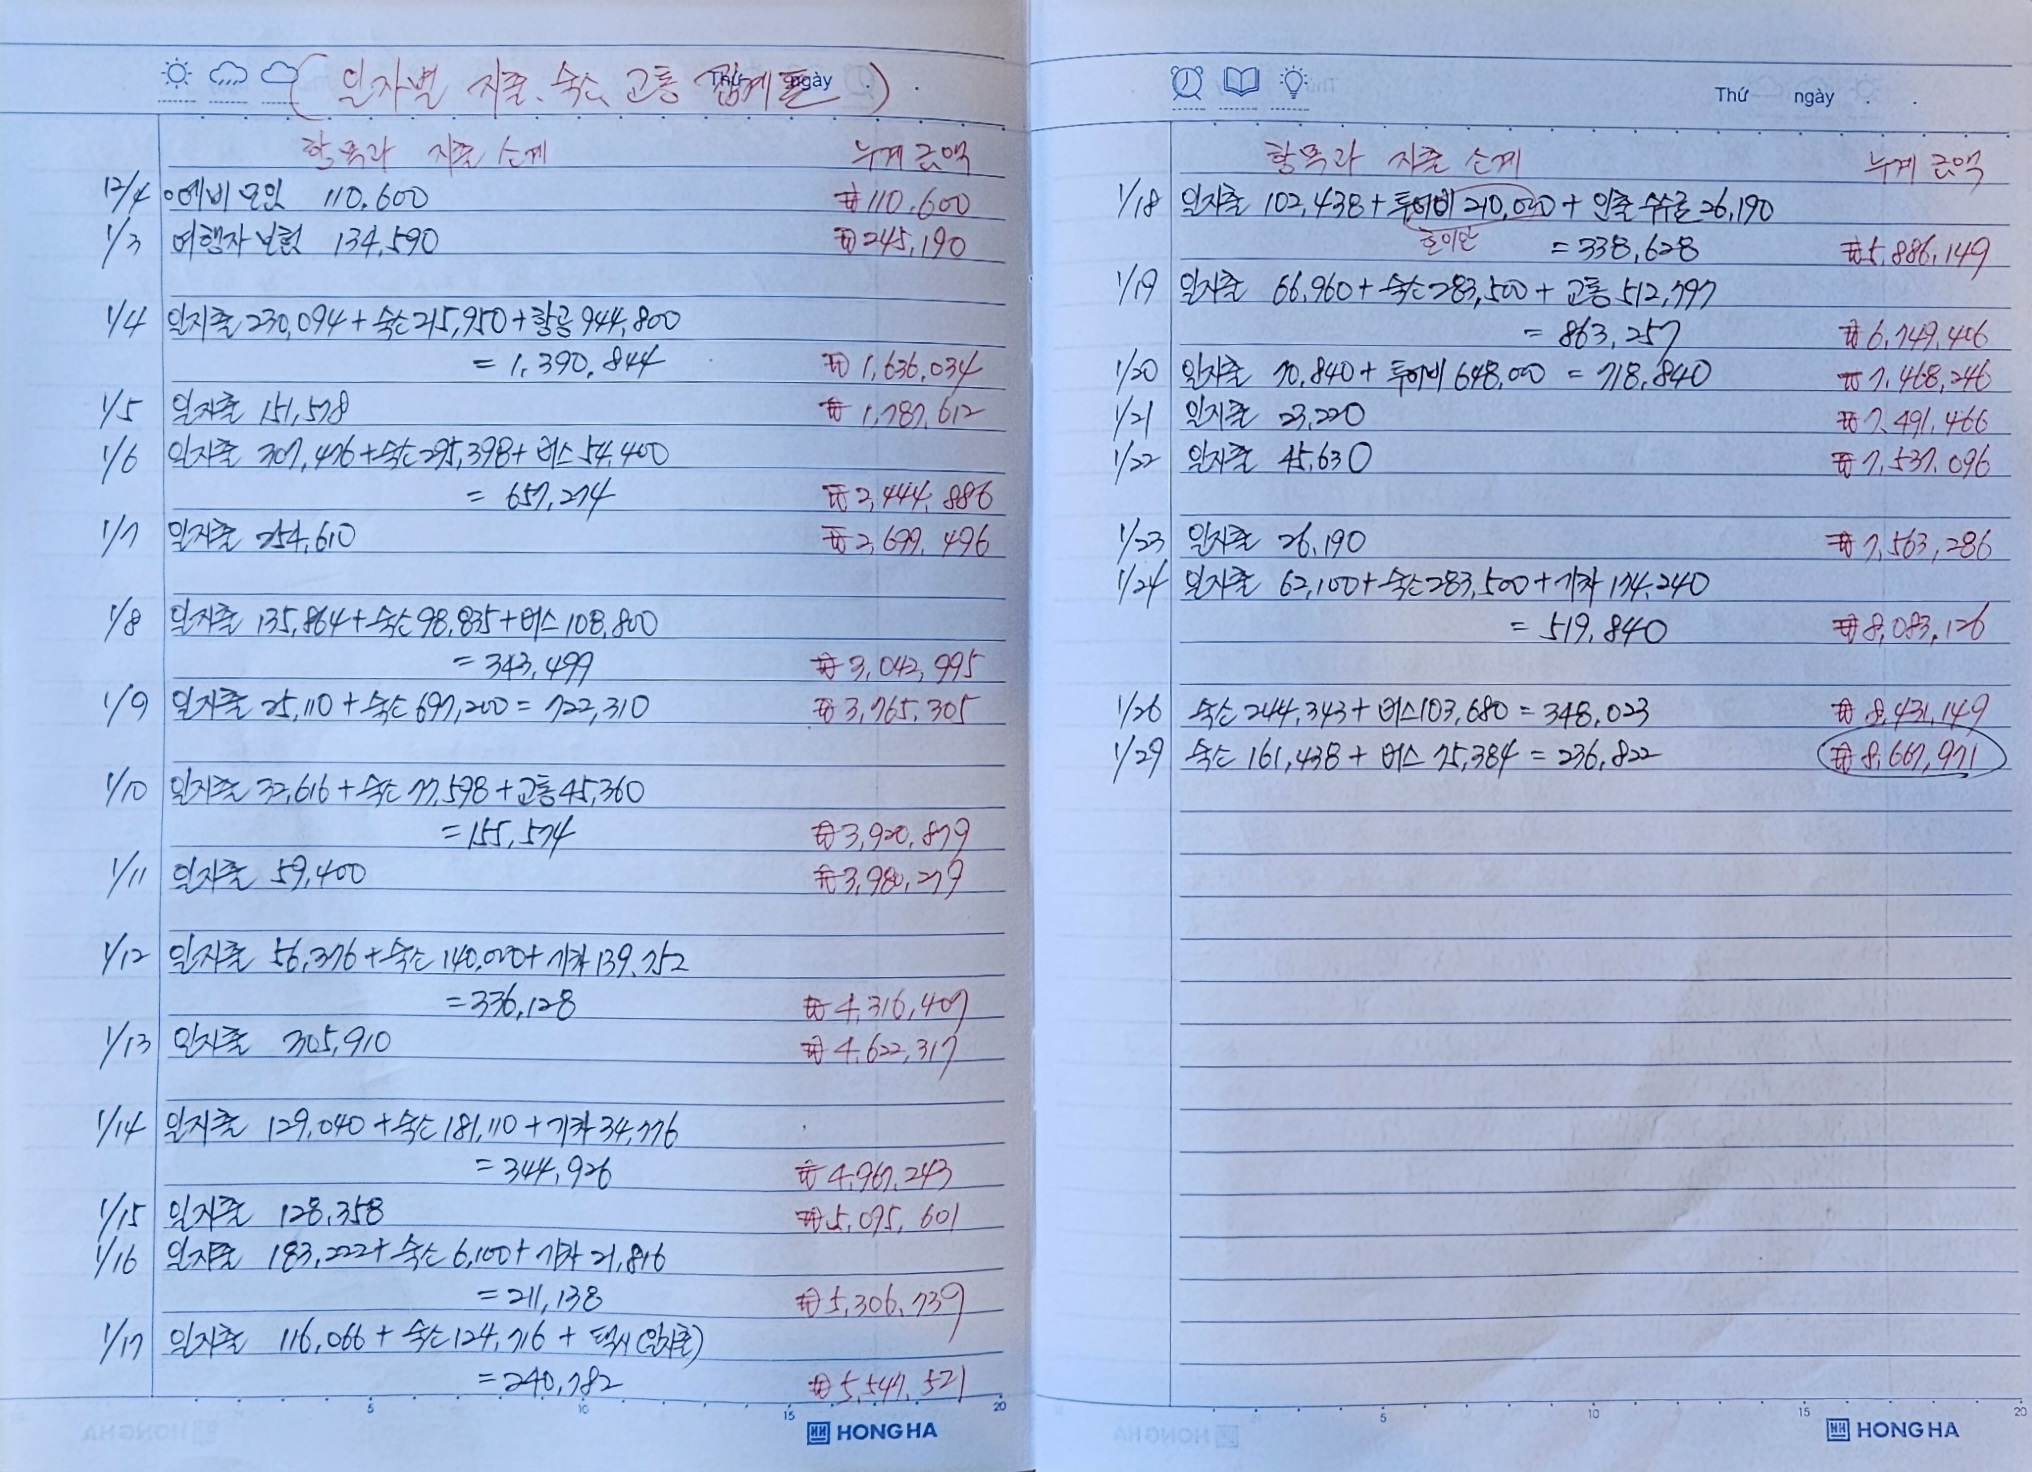 (일자별 지출、숙소、교통 집계표)
Thứ ngày
항목과 지출 소계 누계 금액
12/4 예비모임 110,600 ₩110,600
1/3 여행자보험 134,590 ₩245,190
1/4 일지출 230,094+숙소215,950+항공 944,800
= 1,390,844 ₩1,636,034
1/5 일지출 151,578 ₩1,787,612
1/6 일지출 307,476+숙소295,398+버스 54,400
= 657,274 ₩2,444,886
1/7 일지출 254,610 ₩2,699,496
1/8 일지출 135,864+숙소98,835+버스 108,800
=343,499 ₩3,042,995
1/9 일지출 25,110+숙소697,200=722,310 ₩3,765,305
1/10 일지출 32,616+숙소77,598+교통45,360
=155,574 ₩3,920,879
1/11 일지출 59,400 ₩3,980,279
1/12 일지출 56,376+숙소140,000+기차139,752
=336,128 ₩4,316,407
1/13 일지출 305,910 ₩4,622,317
1/14 일지출 129,040+숙소181,110+기차34,776
=344,926 ₩4,967,243
1/15 일지출 128,358 ₩5,095,601
1/16 일지출 183,222+숙소6,100+기차21,816
=211,138 ₩5,306,739
1/17 일지출 116,066+숙소124,716+택시(일지출)
=240,782 ₩5,547,521
5 10 15 20
HONG HA
Thứ ngày
항목과 지출 소계 누계 금액
1/18 일지출 102,438+투어비210,000+인출수수료26,190
호이안 =338,628 ₩5,886,149
1/19 일지출 66,960+숙소283,500+교통512,797
=863,257 ₩6,749,406
1/20 일지출 70,840+투어비648,000=718,840 ₩7,468,246
1/21 일지출 23,220 ₩7,491,466
1/22 일지출 45,630 ₩7,537,096
1/23 일지출 26,190 ₩7,563,286
1/24 일지출 62,100+숙소283,500+기차174,240
=519,840 ₩8,083,126
1/26 숙소244,343+버스103,680=348,023 ₩8,431,149
1/29 숙소161,438+버스75,384=236,822 ₩8,667,971
5 10 15 20
HONG HA